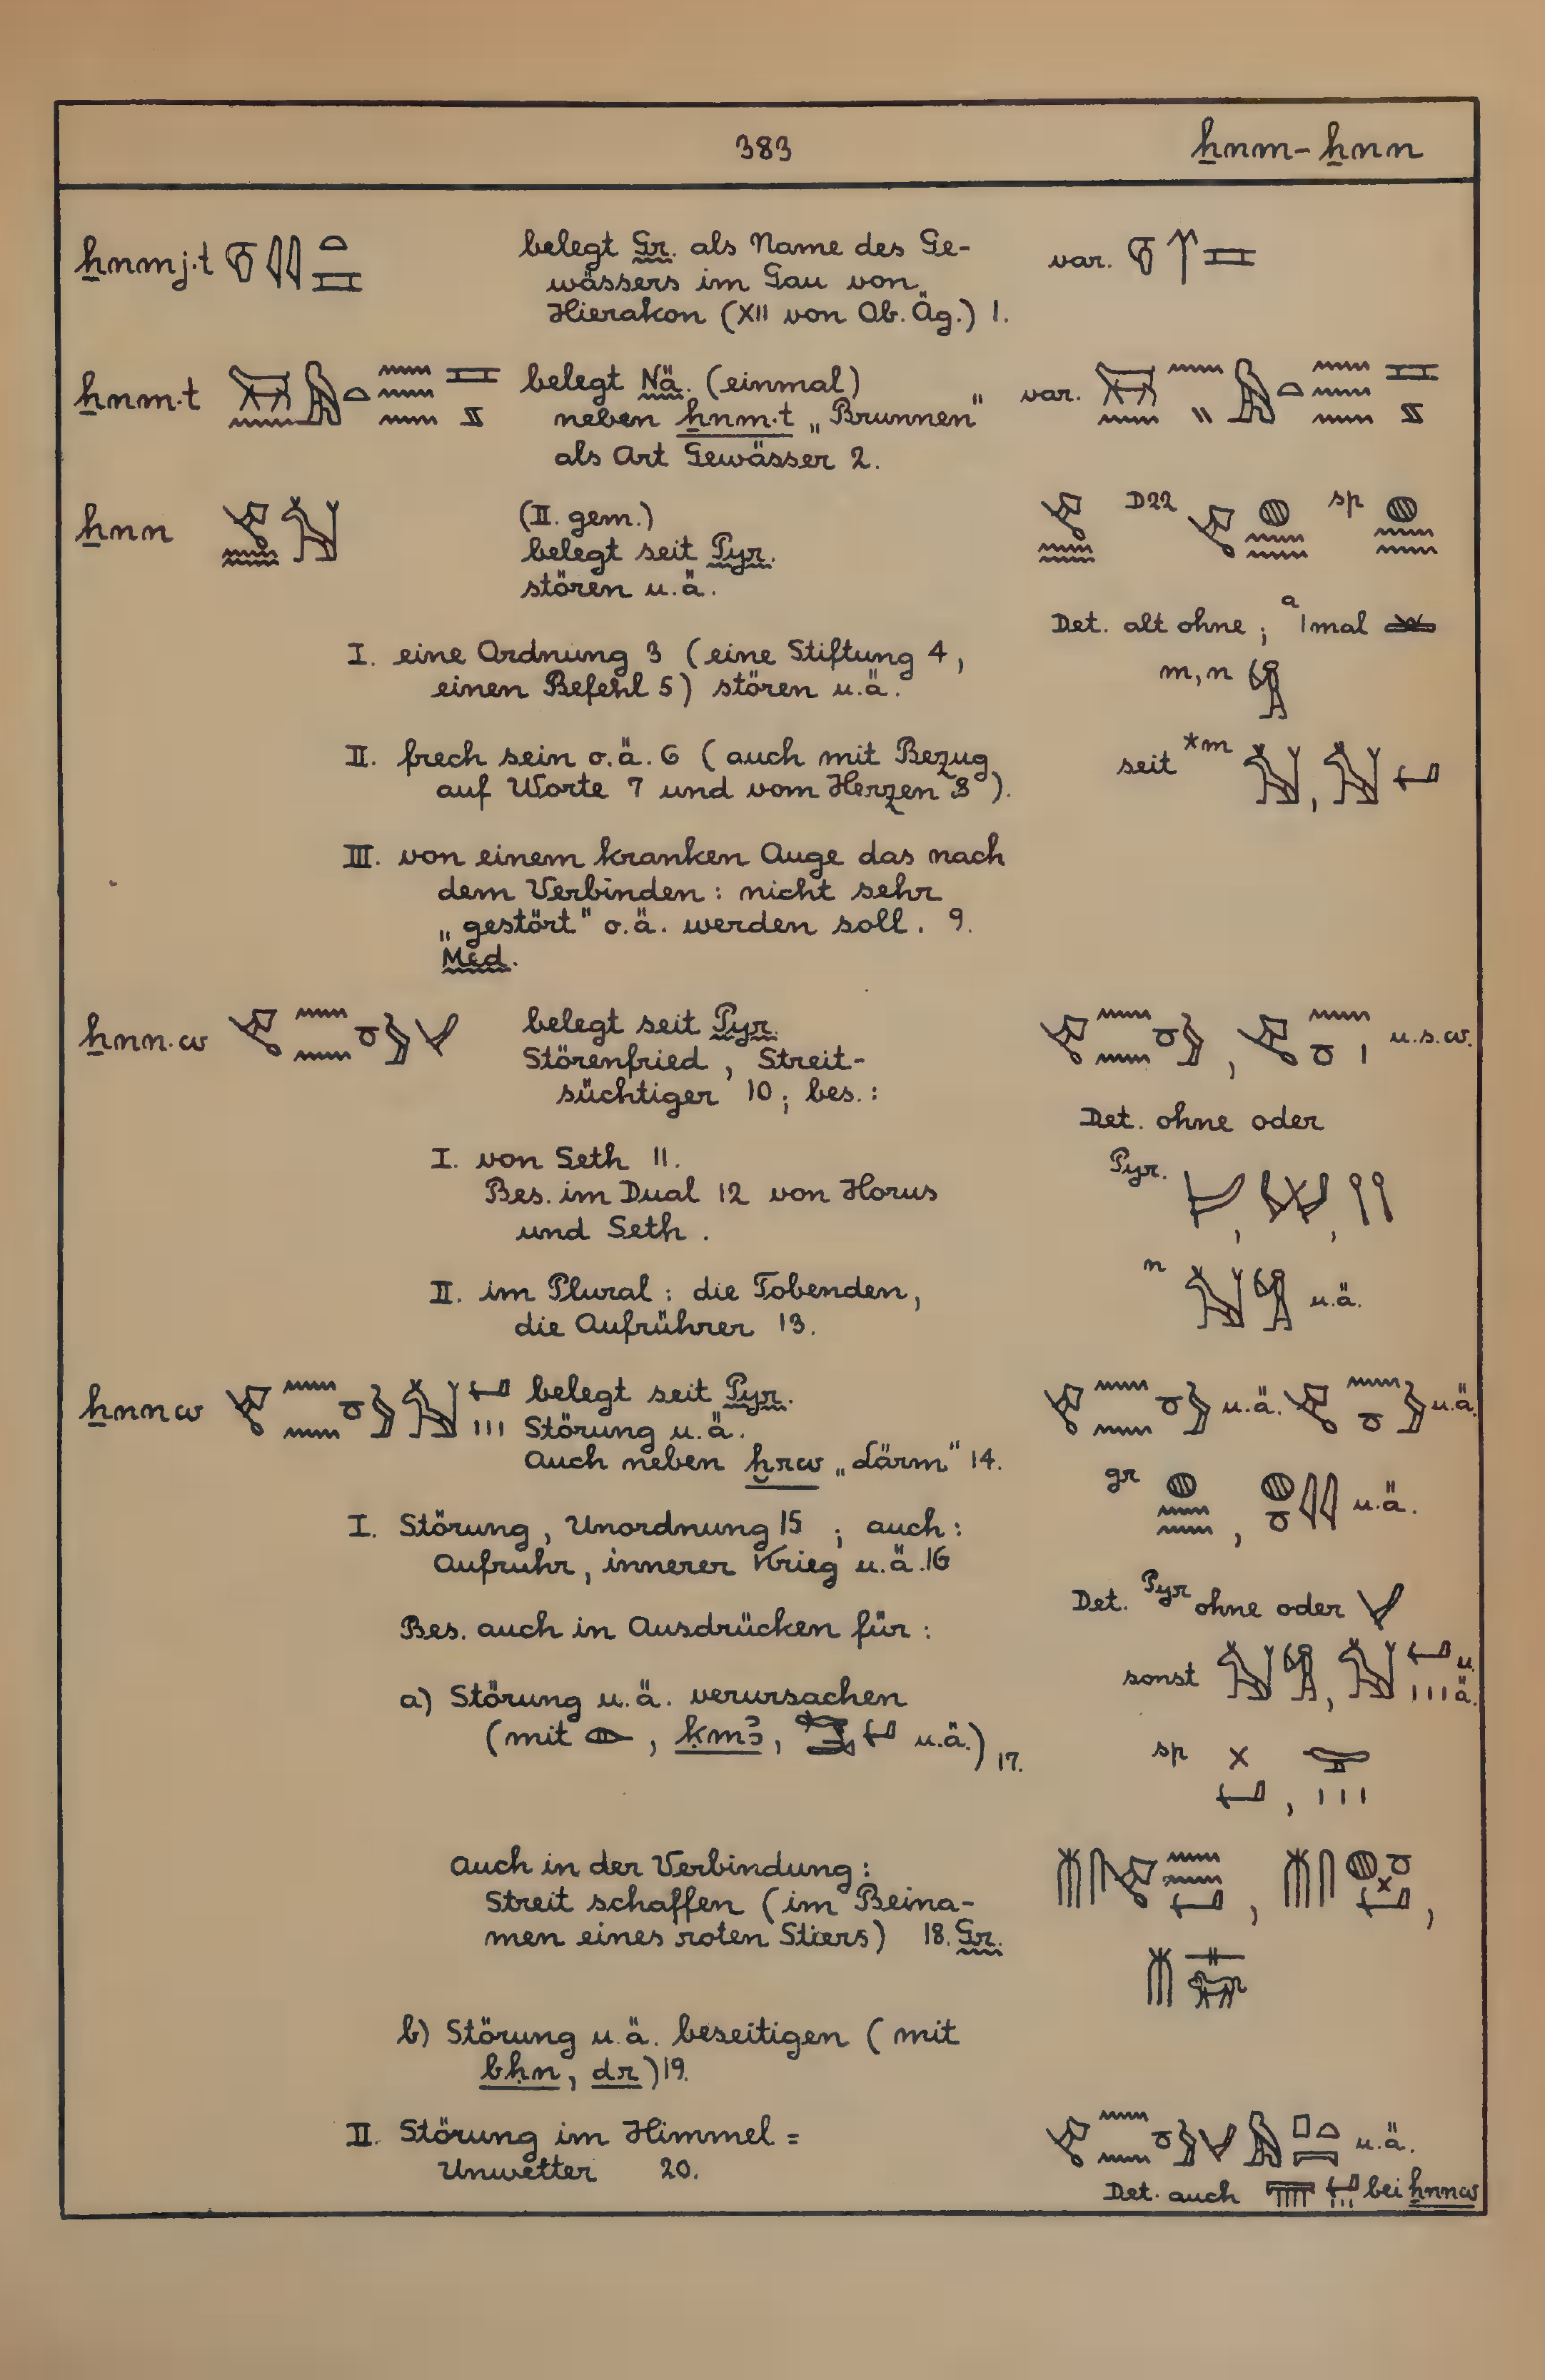 383 ẖnm-ẖnn
ẖnmj.t belegt Gr. als Name des Ge- var.
wässers im Gau von
Hierakon (XII von Ob. Äg.) 1.
ẖnm.t belegt Nä. (einmal) var.
neben ẖnm.t „Brunnen"
als Art Gewässer 2.
ẖnn (II. gem.) D22 sp
belegt seit Pyr.
stören u.ä.
Det. alt ohne; a 1mal
I. eine Ordnung 3 (eine Stiftung 4,
einen Befehl 5) stören u.ä. m, n
II. frech sein o.ä. 6 (auch mit Bezug seit *m
auf Worte 7 und vom Herzen 8).
III. von einem kranken Auge das nach
dem Verbinden: nicht sehr
„gestört" o.ä. werden soll. 9.
Med.
ẖnn.w belegt seit Pyr. , u.s.w.
Störenfried, Streit-
süchtiger 10; bes.:
Det. ohne oder
I. von Seth 11. Pyr.
Bes. im Dual 12 von Horus
und Seth.
II. im Plural: die Tobenden, n u.ä.
die Aufrührer 13.
ẖnnw belegt seit Pyr. u.ä. u.ä.
Störung u.ä.
Auch neben ḫrw „Lärm" 14. gr , u.ä.
I. Störung, Unordnung 15; auch:
Aufruhr, innerer Krieg u.ä. 16
Det. Pyr ohne oder
Bes. auch in Ausdrücken für:
sonst , u.ä.
a) Störung u.ä. verursachen
(mit , ḳmꜣ, u.ä.) 17. sp ,
auch in der Verbindung:
Streit schaffen (im Beina- , ,
men eines roten Stiers) 18. Gr.
b) Störung u.ä. beseitigen (mit
bḥn, dr) 19.
II. Störung im Himmel = u.ä.
Unwetter 20.
Det. auch bei ẖnnw